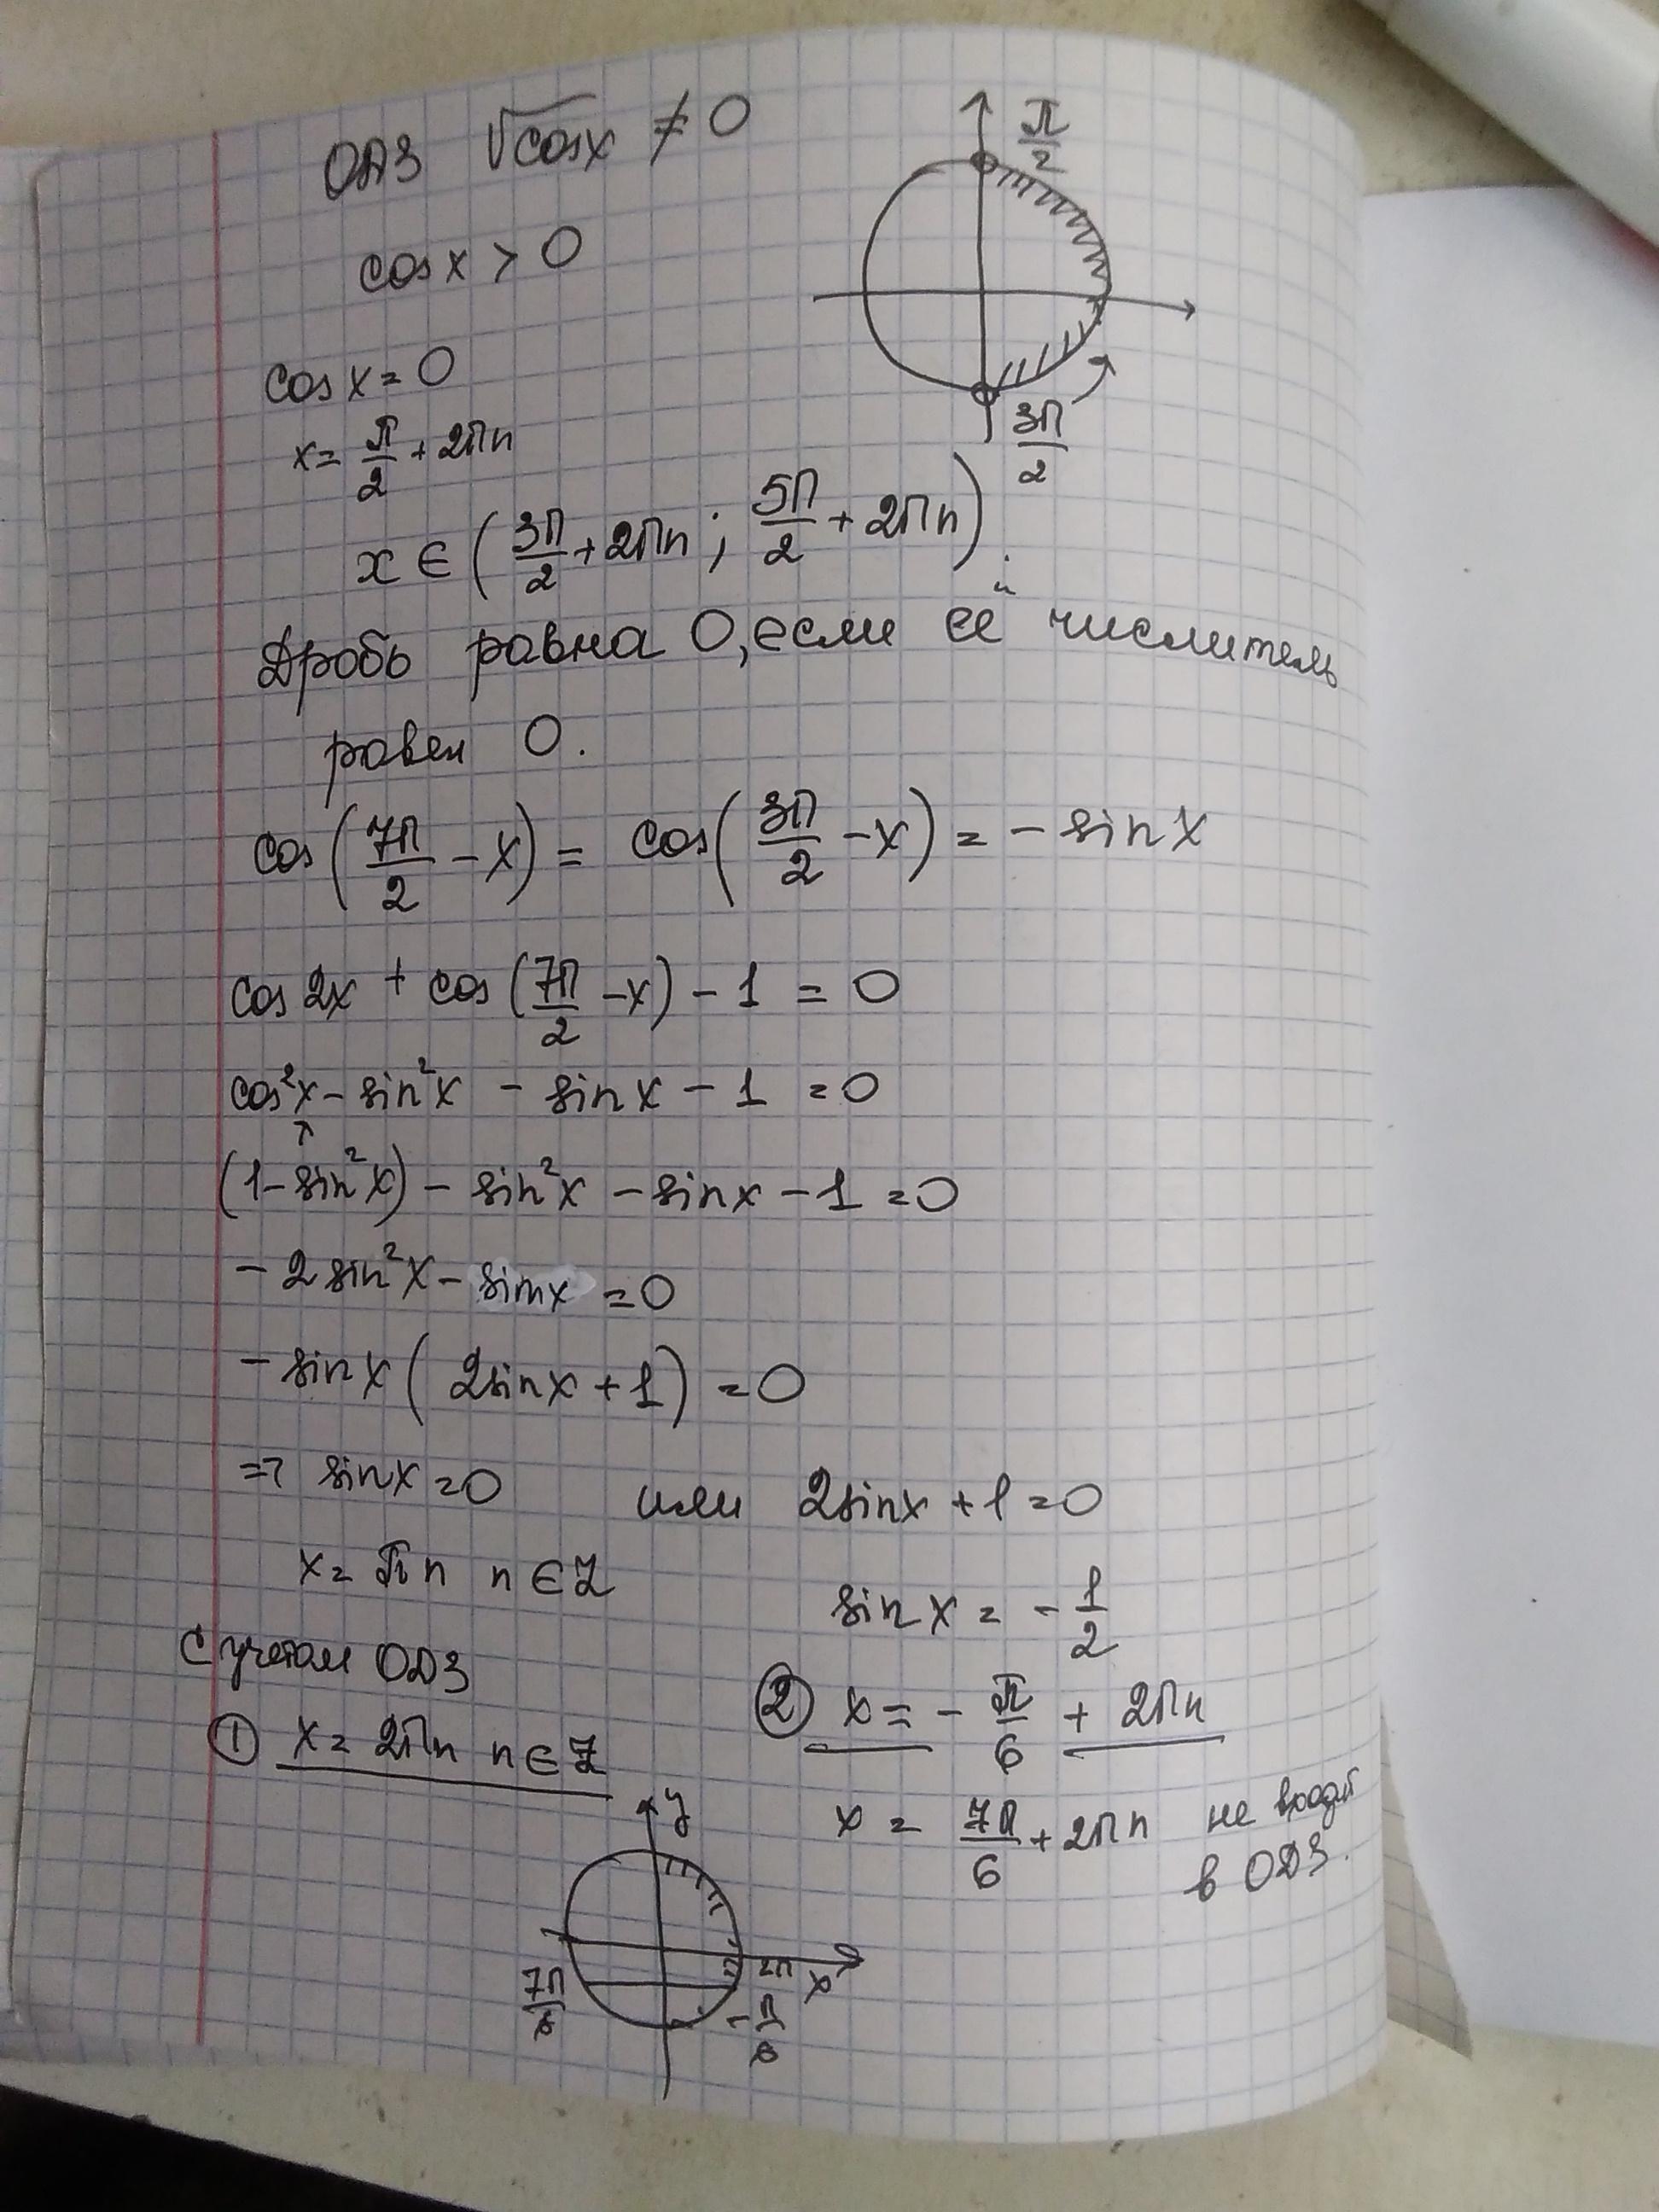 ОДЗ √cosx ≠ 0
π/2
cosx > 0
cosx = 0
x = π/2 + 2πn
3π/2
x ∈ (3π/2 + 2πn ; 5π/2 + 2πn).
Дробь равна 0, если её числитель
равен 0.
cos(7π/2 - x) = cos(3π/2 - x) = - sinx
cos2x + cos(7π/2 - x) - 1 = 0
cos²x - sin²x - sinx - 1 = 0
(1 - sin²x) - sin²x - sinx - 1 = 0
- 2sin²x - sinx = 0
- sinx(2sinx + 1) = 0
=> sinx = 0 или 2sinx + 1 = 0
x = πn n ∈ Z
sinx = - 1/2
С учетом ОДЗ
① x = 2πn n ∈ Z
② x = - π/6 + 2πn
x = 7π/6 + 2πn не входит
в ОДЗ.
y
2π
x
7π/6
-π/6